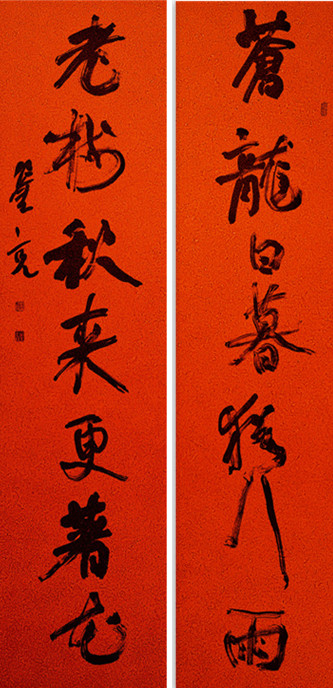 蒼龍日暮猶行雨
老樹秋來更著花
亮